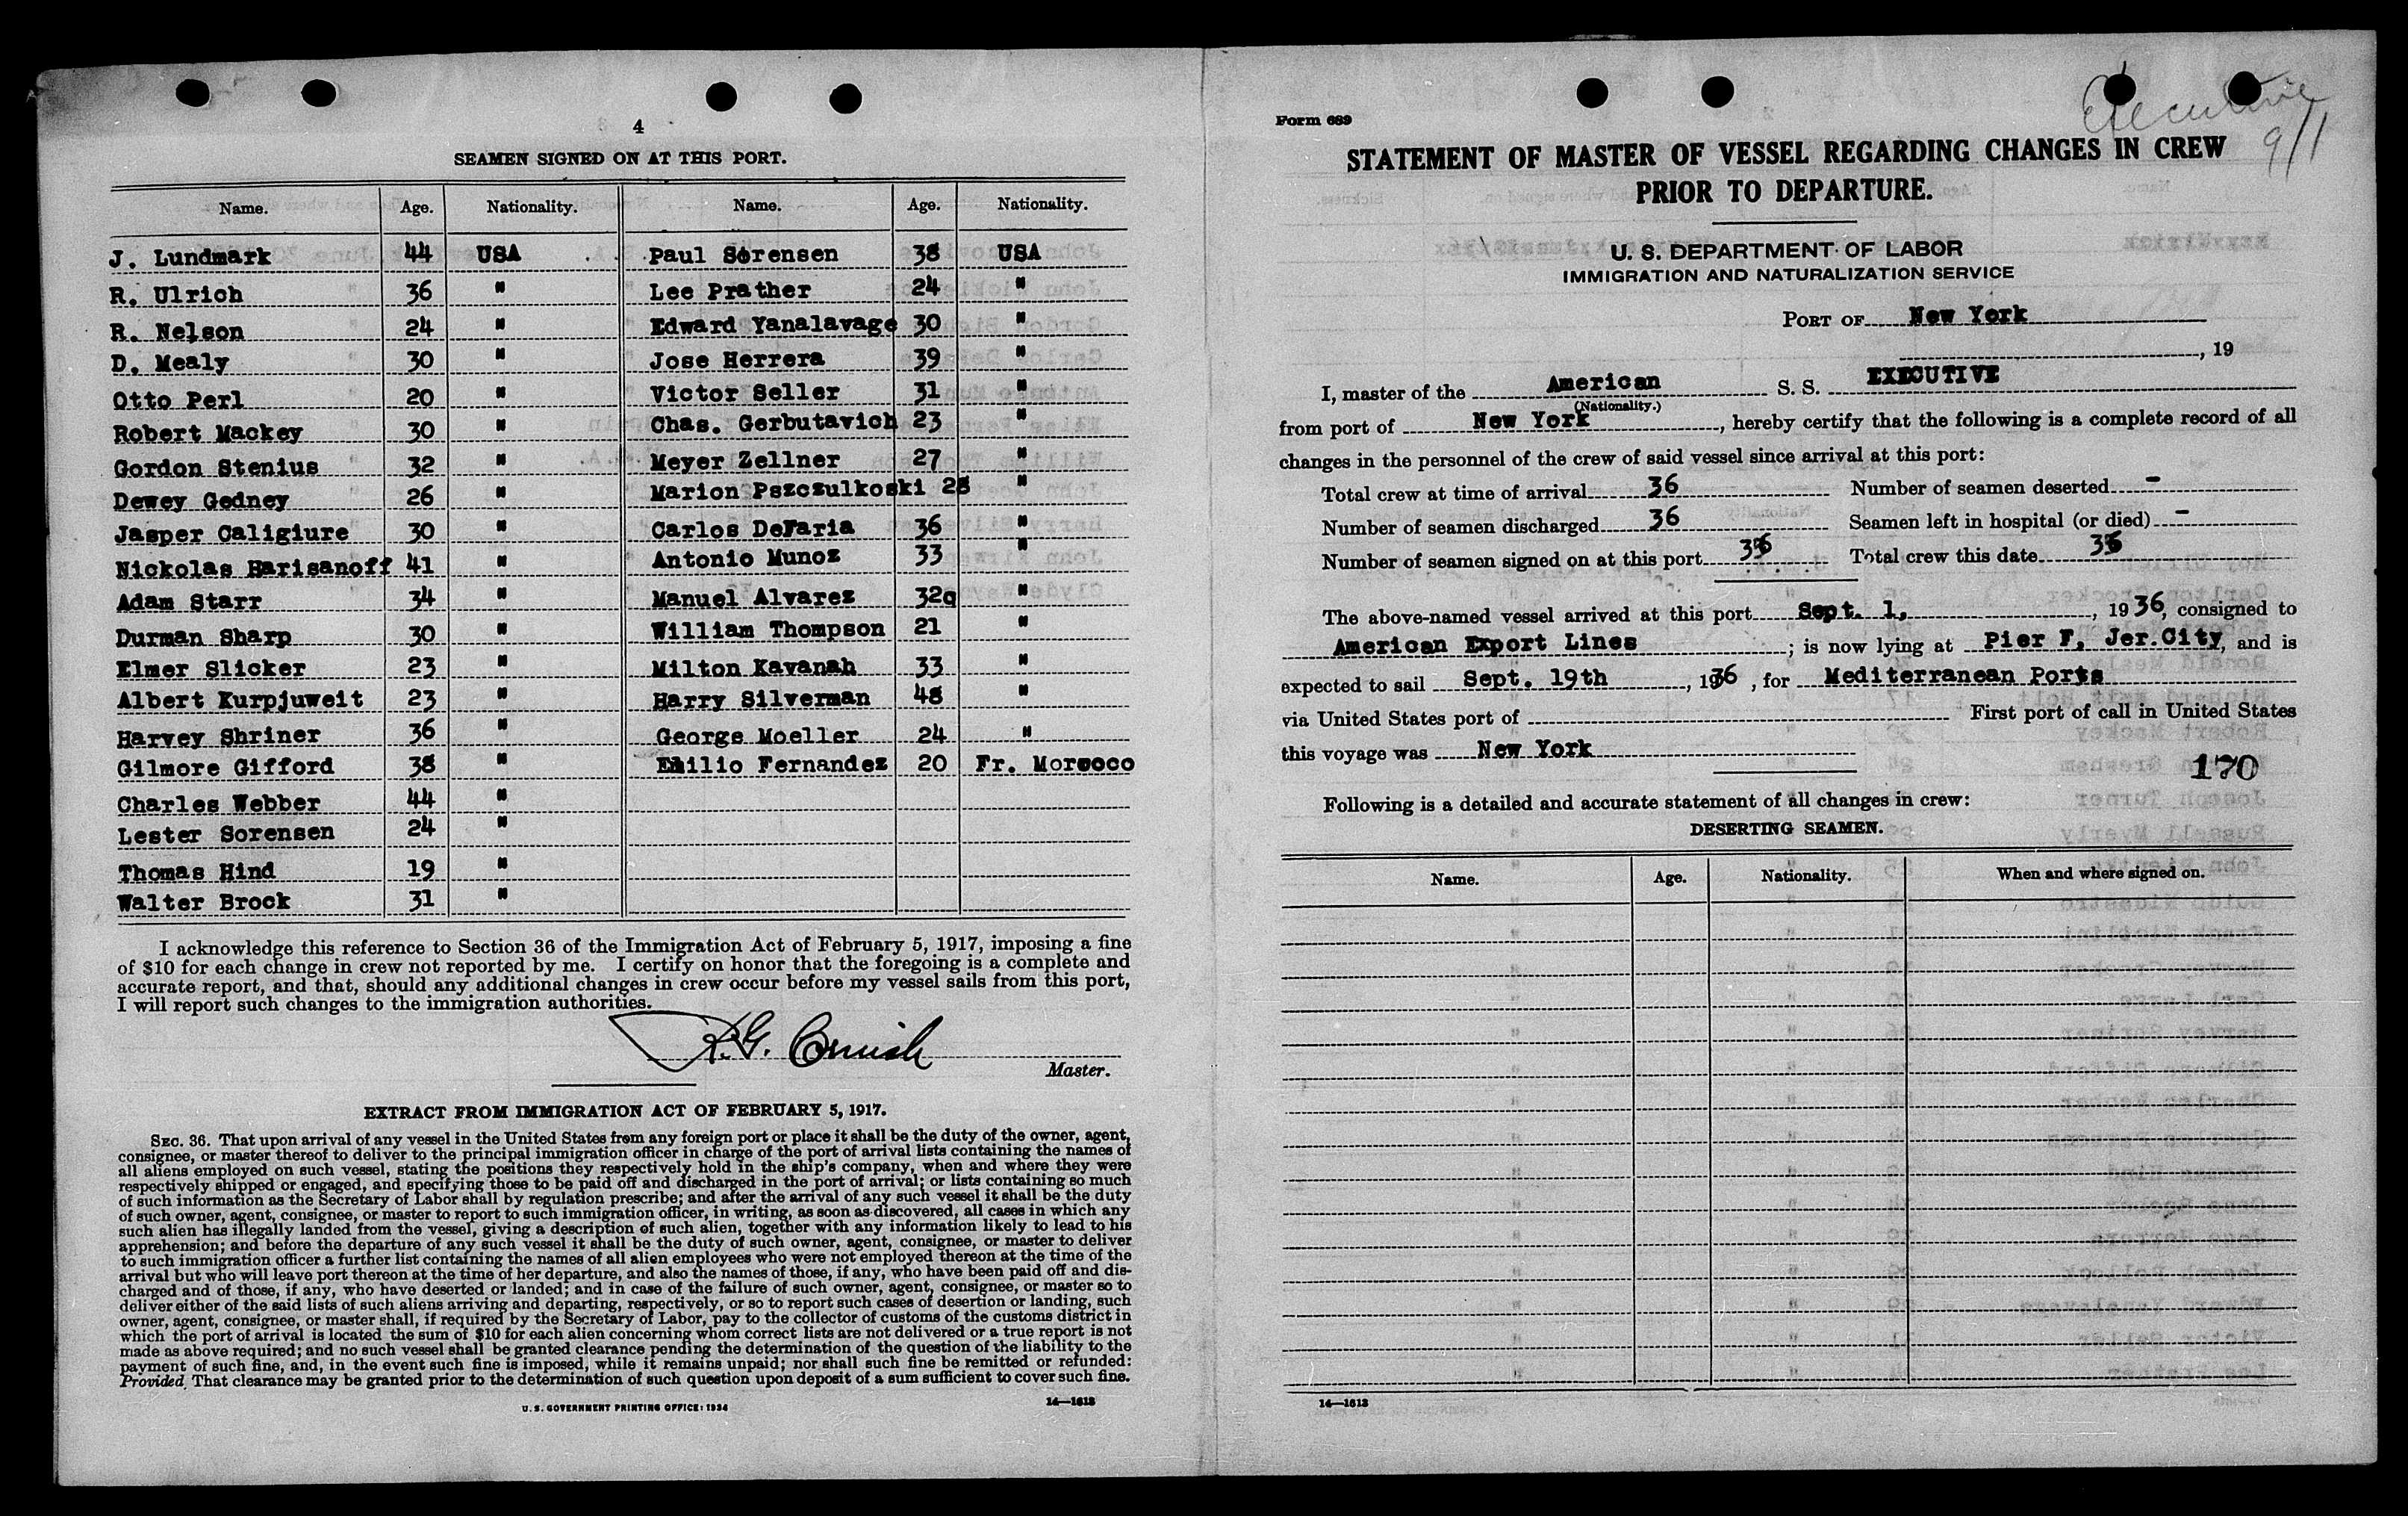 4
SEAMEN SIGNED ON AT THIS PORT.
Name. Age. Nationality. Name. Age. Nationality.
J. Lundmark 44 USA Paul Sorensen 38 USA
R. Ulrich 36 " Lee Prather 24 "
R. Nelson 24 " Edward Yanalavage 30 "
D. Mealy 30 " Jose Herrera 39 "
Otto Perl 20 " Victor Seller 31 "
Robert Mackey 30 " Chas. Gerbutavich 23 "
Gordon Stenius 32 " Meyer Zellner 27 "
Dewey Gedney 26 " Marion Pszczulkoski 28 "
Jasper Caligiure 30 " Carlos DeFaria 36 "
Nickolas Harisanoff 41 " Antonio Munoz 33 "
Adam Starr 34 " Manuel Alvarez 32q "
Durman Sharp 30 " William Thompson 21 "
Elmer Slicker 23 " Milton Kavanah 33 "
Albert Kurpjuweit 23 " Harry Silverman 48 "
Harvey Shriner 36 " George Moeller 24 "
Gilmore Gifford 38 " Emilio Fernandez 20 Fr. Morocco
Charles Webber 44 "
Lester Sorensen 24 "
Thomas Hind 19 "
Walter Brock 31 "
I acknowledge this reference to Section 36 of the Immigration Act of February 5, 1917, imposing a fine
of $10 for each change in crew not reported by me. I certify on honor that the foregoing is a complete and
accurate report, and that, should any additional changes in crew occur before my vessel sails from this port,
I will report such changes to the immigration authorities.
R.G. Cornish
Master.
EXTRACT FROM IMMIGRATION ACT OF FEBRUARY 5, 1917.
SEC. 36. That upon arrival of any vessel in the United States from any foreign port or place it shall be the duty of the owner, agent,
consignee, or master thereof to deliver to the principal immigration officer in charge of the port of arrival lists containing the names of
all aliens employed on such vessel, stating the positions they respectively hold in the ship's company, when and where they were
respectively shipped or engaged, and specifying those to be paid off and discharged in the port of arrival; or lists containing so much
of such information as the Secretary of Labor shall by regulation prescribe; and after the arrival of any such vessel it shall be the duty
of such owner, agent, consignee, or master to report to such immigration officer, in writing, as soon as discovered, all cases in which any
such alien has illegally landed from the vessel, giving a description of such alien, together with any information likely to lead to his
apprehension; and before the departure of any such vessel it shall be the duty of such owner, agent, consignee, or master to deliver
to such immigration officer a further list containing the names of all alien employees who were not employed thereon at the time of the
arrival but who will leave port thereon at the time of her departure, and also the names of those, if any, who have been paid off and dis-
charged and of those, if any, who have deserted or landed; and in case of the failure of such owner, agent, consignee, or master so to
deliver either of the said lists of such aliens arriving and departing, respectively, or so to report such cases of desertion or landing, such
owner, agent, consignee, or master shall, if required by the Secretary of Labor, pay to the collector of customs of the customs district in
which the port of arrival is located the sum of $10 for each alien concerning whom correct lists are not delivered or a true report is not
made as above required; and no such vessel shall be granted clearance pending the determination of the question of the liability to the
payment of such fine, and, in the event such fine is imposed, while it remains unpaid; nor shall such fine be remitted or refunded:
Provided, That clearance may be granted prior to the determination of such question upon deposit of a sum sufficient to cover such fine.
U. S. GOVERNMENT PRINTING OFFICE: 1934 14—1613
Executive
9/1
Form 689
STATEMENT OF MASTER OF VESSEL REGARDING CHANGES IN CREW
PRIOR TO DEPARTURE.
U. S. DEPARTMENT OF LABOR
IMMIGRATION AND NATURALIZATION SERVICE
PORT OF New York
, 19
I, master of the American S. S. EXECUTIVE
(Nationality.)
from port of New York, hereby certify that the following is a complete record of all
changes in the personnel of the crew of said vessel since arrival at this port:
Total crew at time of arrival 36 Number of seamen deserted -
Number of seamen discharged 36 Seamen left in hospital (or died) -
Number of seamen signed on at this port 36 Total crew this date 36
The above-named vessel arrived at this port Sept. 1, 1936, consigned to
American Export Lines; is now lying at Pier F, Jer.City, and is
expected to sail Sept. 19th, 1936, for Mediterranean Ports
via United States port of First port of call in United States
this voyage was New York
170
Following is a detailed and accurate statement of all changes in crew:
DESERTING SEAMEN.
Name. Age. Nationality. When and where signed on.
14—1613